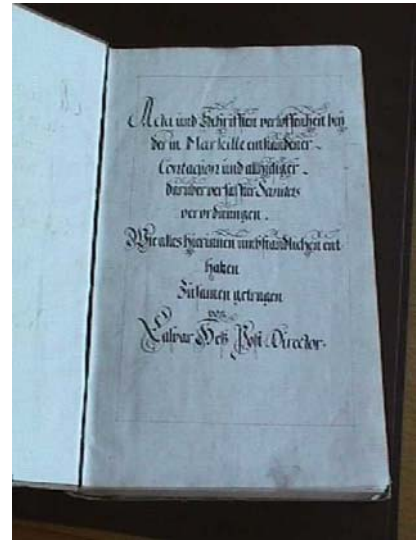 Acta und Schrifften verloffenheit bey
der in Marseille entstandener
Contagion und allhiesiger
darüber verfaßter Sanitets
verordnungen.
Wie alles hierinnen umbständlichen ent
halten
Zusamen getragen
von
Caspar Heß Post-Director.